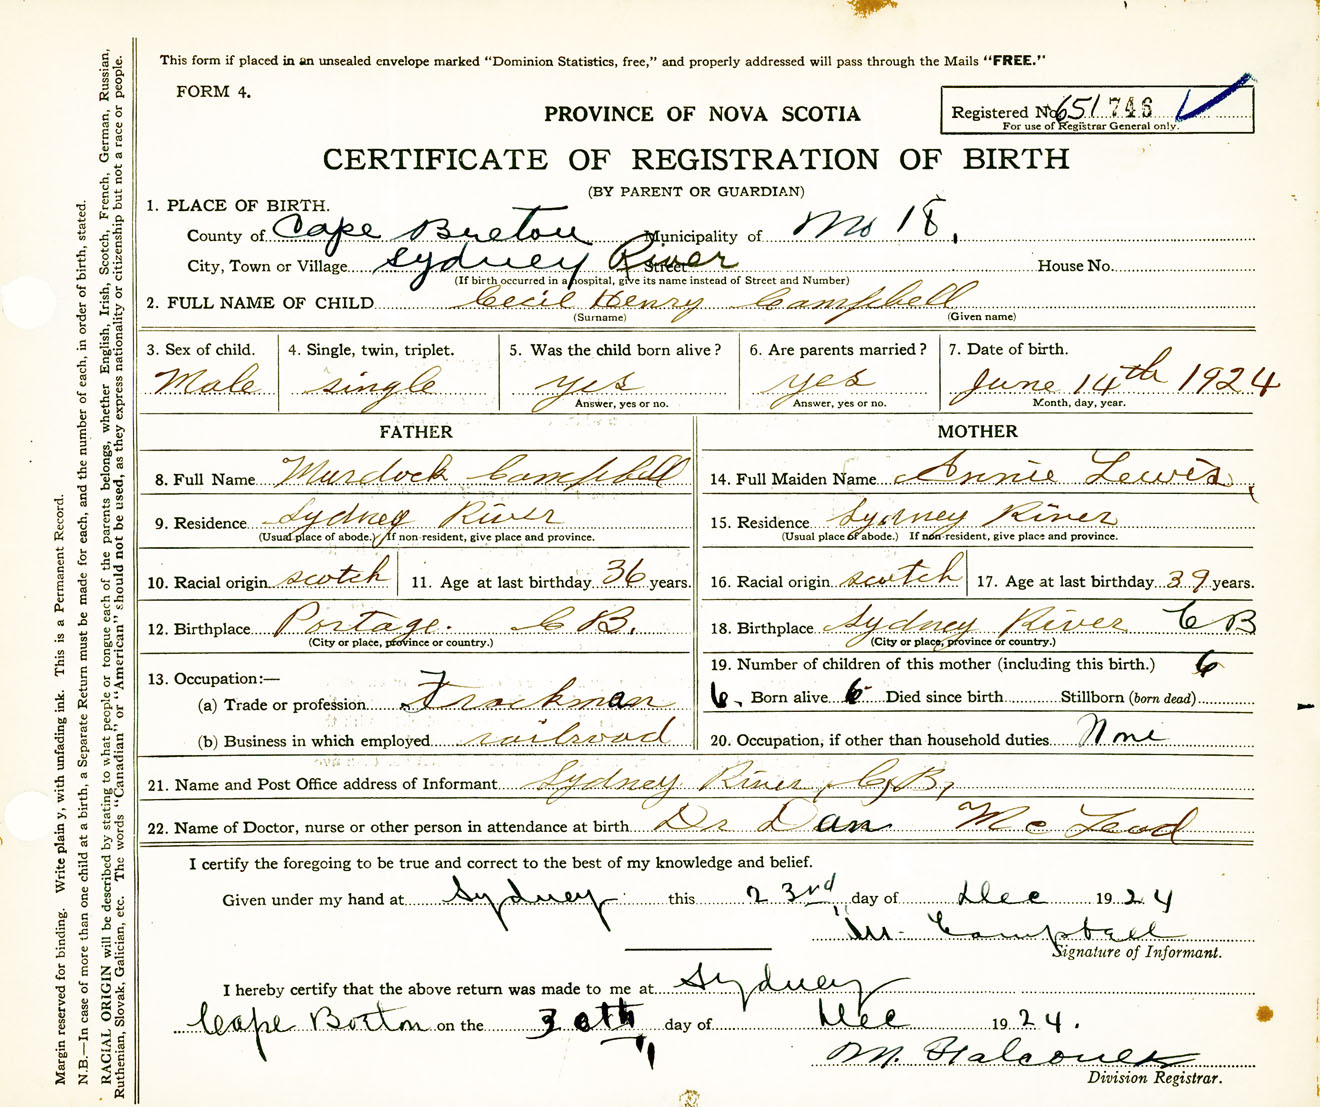 This form if placed in an unsealed envelope marked "Dominion Statistics, free," and properly addressed will pass through the Mails "FREE."
FORM 4.
Registered No. 651 746
For use of Registrar General only.
PROVINCE OF NOVA SCOTIA
CERTIFICATE OF REGISTRATION OF BIRTH
(BY PARENT OR GUARDIAN)
1. PLACE OF BIRTH.
County of Cape Breton Municipality of No 18,
City, Town or Village Sydney River Street House No.
(If birth occurred in a hospital, give its name instead of Street and Number)
2. FULL NAME OF CHILD Cecil Henry Campbell
(Surname) (Given name)
3. Sex of child. 4. Single, twin, triplet. 5. Was the child born alive? 6. Are parents married? 7. Date of birth.
Male single yes yes June 14th 1924
Answer, yes or no. Answer, yes or no. Month, day, year.
FATHER MOTHER
8. Full Name Murdock Campbell 14. Full Maiden Name Annie Lewis
9. Residence Sydney River 15. Residence Sydney River
(Usual place of abode.) If non-resident, give place and province. (Usual place of abode.) If non-resident, give place and province.
10. Racial origin scotch 11. Age at last birthday 36 years. 16. Racial origin scotch 17. Age at last birthday 39 years.
12. Birthplace Portage. C B. 18. Birthplace Sydney River C B
(City or place, province or country.) (City or place, province or country.)
13. Occupation:— 19. Number of children of this mother (including this birth.) 6
(a) Trade or profession Trackman 6. Born alive 6 Died since birth Stillborn (born dead)
(b) Business in which employed railroad 20. Occupation, if other than household duties None
21. Name and Post Office address of Informant Sydney River, C, B,
22. Name of Doctor, nurse or other person in attendance at birth Dr Dan Mc Leod
I certify the foregoing to be true and correct to the best of my knowledge and belief.
Given under my hand at Sydney this 23rd day of Dec 1924
M. Campbell
Signature of Informant.
I hereby certify that the above return was made to me at Sydney
Cape Borton on the 30th day of Dec 1924.
M.
Division Registrar.
Margin reserved for binding. Write plainly, with unfading ink. This is a Permanent Record.
N.B.—In case of more than one child at a birth, a Separate Return must be made for each, and the number of each, in order of birth, stated.
RACIAL ORIGIN will be described by stating to what people or tongue each of the parents belongs, whether English, Irish, Scotch, French, German, Russian,
Ruthenian, Slovak, Galician, etc. The words "Canadian" or "American" should not be used, as they express nationality or citizenship but not a race or people.